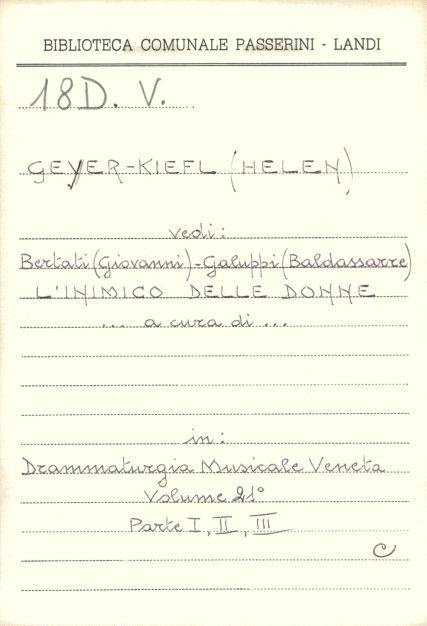 BIBLIOTECA COMUNALE PASSERINI - LANDI
18D. V.
GEYER-KIEFL (HELEN)
vedi:
Bertati (Giovanni) - Galuppi (Baldassarre)
L'INIMICO DELLE DONNE
... a cura di ...
in:
Drammaturgia Musicale Veneta
Volume 21°
Parte I, II, III
C